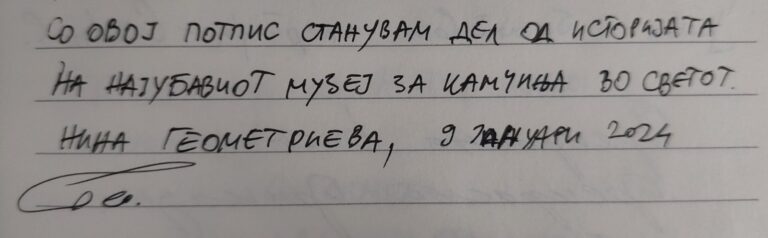 Со овој потпис станувам дел од историјата
на најубавиот музеј за камчиња во светот.
Нина Геометриева, 9 јануари 2024